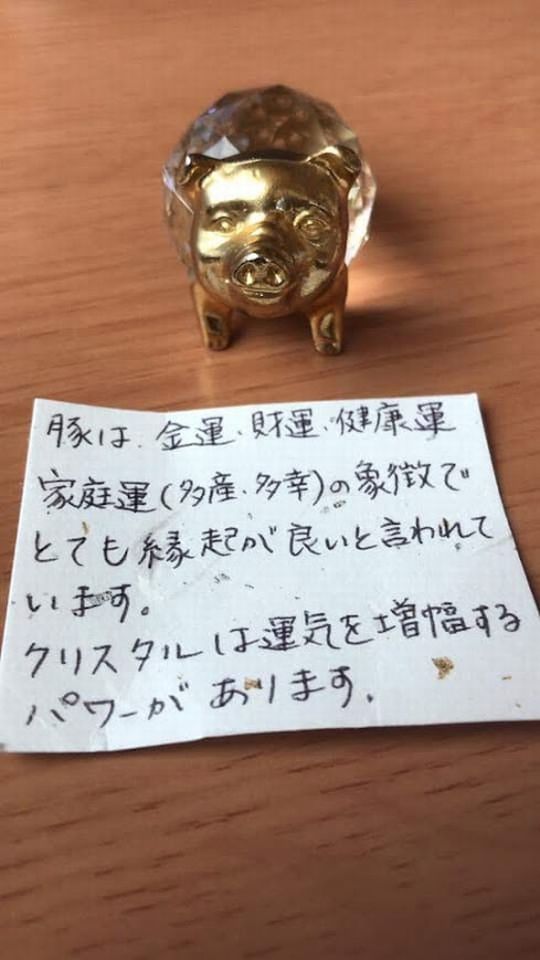 豚は、金運、財運、健康運
家庭運(多産、多幸)の象徴で
とても縁起が良いと言われて
います。
クリスタルは運気を増幅する
パワーがあります。